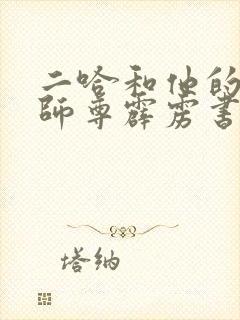 二哈和他的
师尊霹雳书
塔纳